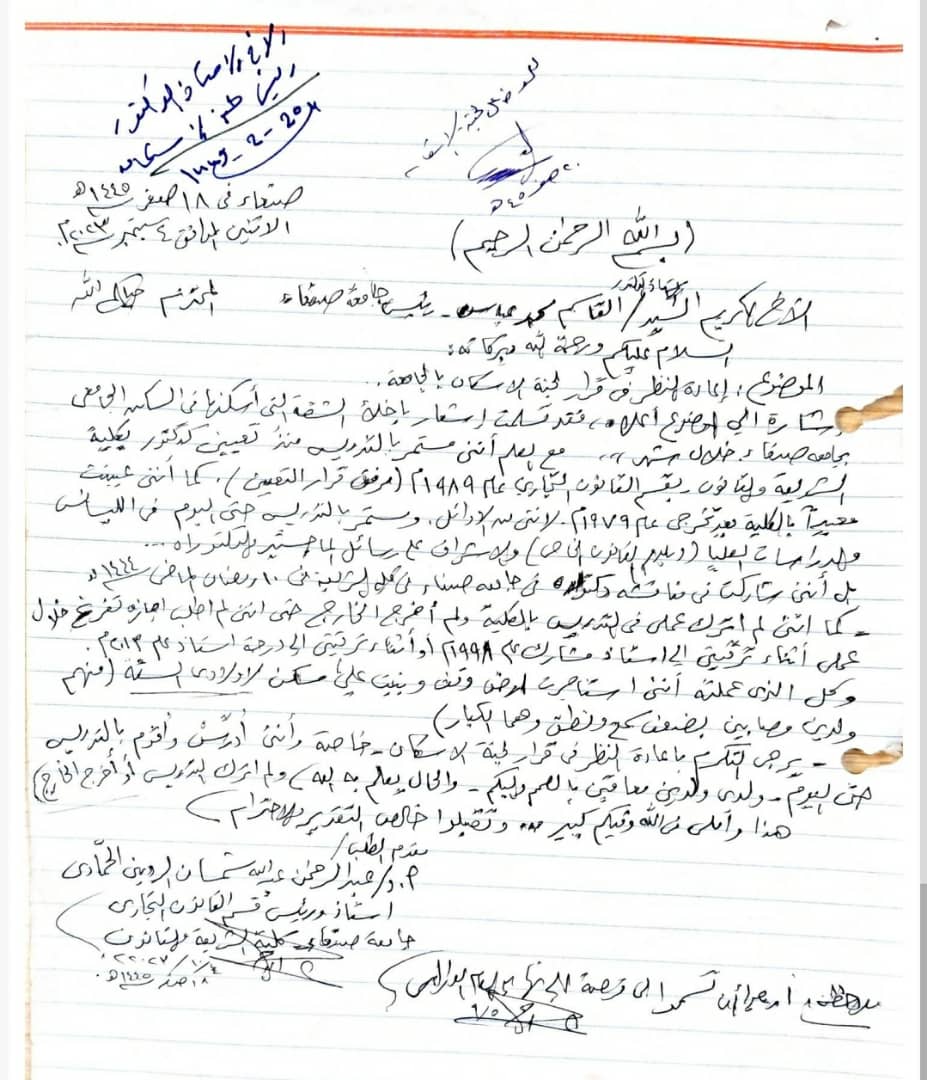 الاخ الاستاذ الدكتور
صنعاء في ١٨ صفر ١٤٤٥هـ
الاثنين الموافق ٤ سبتمبر ٢٠٢٣م.
(بسم الله الرحمن الرحيم)
الأخ الكريم الأستاذ الدكتور السيد/ القاسم محمد عباس - رئيس جامعة صنعاء المحترم حياكم الله
السلام عليكم ورحمة الله وبركاته:
الموضوع: إعادة النظر في قرار لجنة الاسكان بالجامعة..
إشارة الى الموضوع أعلاه، فقد تسلمت إشعار بإخلاء الشقة التي أسكنها في السكن الجامعي
بجامعة صنعاء خلال شهر ,, مع العلم أنني مستمر بالتدريس منذ تعييني كدكتور بكلية
الشريعة والقانون - بقسم القانون التجاري عام ١٩٨٩م (مرفق قرار التعيين)، كما أنني عينت
معيداً بالكلية بعد تخرجي عام ١٩٧٩م - لانني من الاوائل. ومستمر بالتدريس حتى اليوم في الليسانس
والدراسات العليا (دبلوم القانون الخاص) والاشراف على رسائل الماجستير والدكتوراه...
بل أنني شاركت في مناقشة دكتوراه في جامعة صنعاء في كلية الشريعة في ١٠ رمضان الماضي ١٤٤٤هـ
- كما انني لم اترك عملي في التدريس بالكلية ولم أخرج الخارج حتى انني لم اطلب اجازة تفرغ خلال
عملي أثناء ترقيتي الى استاذ مشارك عام ١٩٩٨م (أو أثناء ترقيتي الى درجة استاذ عام ٢٠١٣م.
وكل الذي عملته أنني استأجرت أرض وقف وبنيت عليها مسكن لاولادي الستة (منهم
ولدين مصابين بضعف سمع ونطق وهما الكبار)
- يرجى التكرم باعادة النظر في قرار لجنة الاسكان - خاصة وأنني أدرّس وأقوم بالتدريس
حتى اليوم - ولدي ولدين معاقين بالصم والبكم - والحال يعلم به الله) ولم اترك التدريس أو أخرج الخارج)
هذا وأملي في الله وفيكم كبير ,,, وتقبلوا خالص التقدير والاحترام)
مقدم الطلب/
أ.د/ عبدالرحمن عبدالله شمسان الحمادي
استاذ ورئيس قسم القانون التجاري
جامعة صنعاء - كلية الشريعة والقانون
١٨ صفر ١٤٤٥هـ.